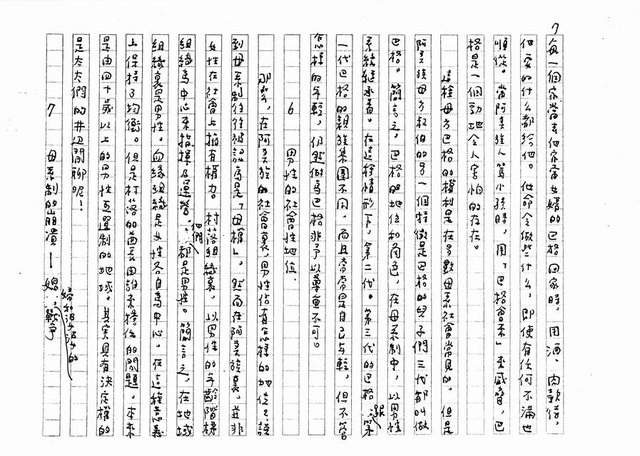 7
每一個家當去他家當女婿的巴格回家時，用酒、肉款待，
他要的什么都給他。他命令做些什么，即便有任何不滿也
順從。當阿美族人罵小孩時，用「巴格會來」來威脅，巴
格是一個勁地令人害怕的存在。
這種母方巴格的權利是在多數母系社會常見的。但是
阿美族母方叔伯的另一個特徵是巴格的兒子們三代都叫做
巴格。簡言之，巴格的地位和角色，在母系制中，以男性
系統繼承着。在這種情形下，第二代、第三代的巴格跟第
一代巴格的親族集團不同，而且常常是自己年輕，但不管
怎樣的年輕，仍然做為巴格非予以尊重不可。
6 男性的社會性地位
那麼，在阿美族的社會裏，男性佔有怎樣的地位？談
到母系制往往被認為是「母權」，然而在阿美族裏，並非
女性在社會上擁有權力。村落組織裏，以男性的年齡階梯
組織為中心來指揮及運營。他們都是男性。簡言之，在地域
組織裏是男性，血緣組織是女性各自為中心，在這種意義
上保持了均衡。但是村落的酋長由誰來擔任的問題，本來
是由四十歲以上的男性互選制的地域。其實具有決定權的
是太太們的井邊閒聊呢！
7 母系制的崩潰—媳
婦和婆婆的
戰爭